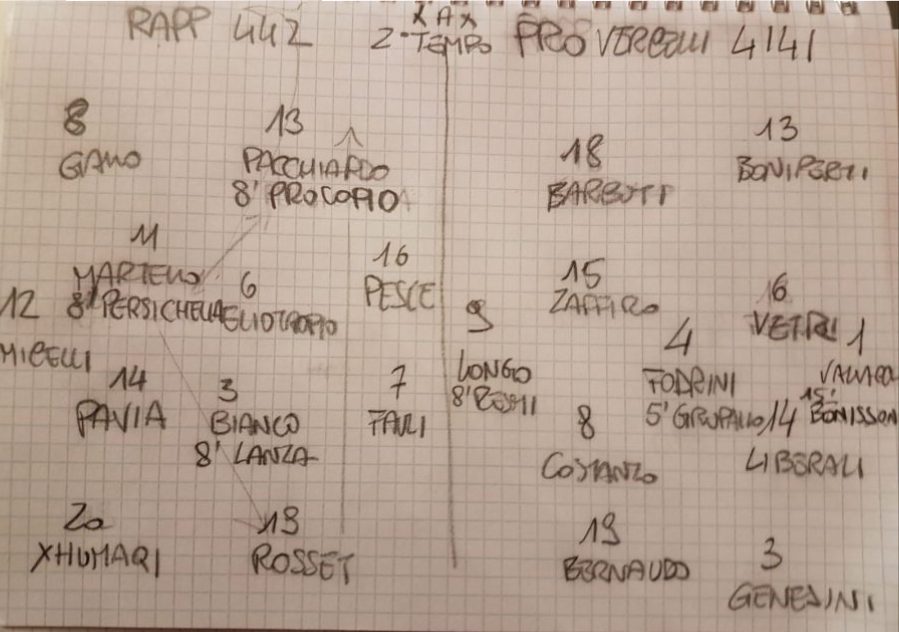 RAPP 442
XAX
2° TEMPO
PRO VERCELLI 4141
8
GAMO
13
PACCHIARDO
8' PROCOPIO
18
BARBUTI
13
BONIPERTI
11
MARTELLO
8' PERSICHELLA
6
ELIOTROPIO
16
PESCE
12
MICELLI
9
LONGO
15
ZAFFIRO
4
FODRINI
5' GRUPALLO
16
VETRI
1
14
PAVIA
3
BIANCO
8' LANZA
7
FAULI
8
COSTANZO
14
LIBERALI
15'
BONISSON
20
XHUMAQI
19
ROSSET
19
BERNAUDO
3
GENESINI